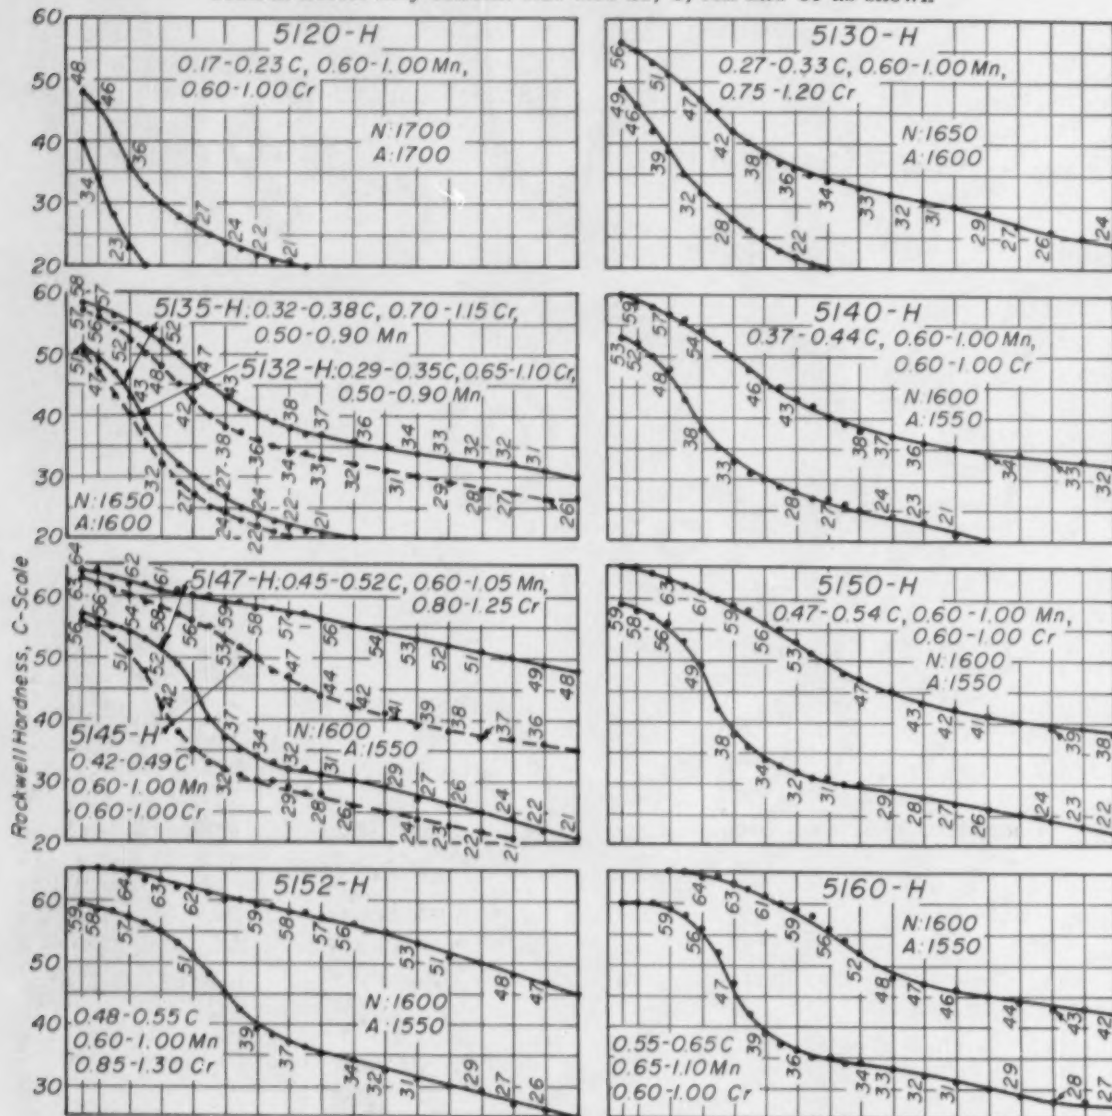 60
5120-H
0.17-0.23 C, 0.60-1.00 Mn,
0.60-1.00 Cr
N:1700
A:1700
50
40
30
20
48
46
36
27
24
22
21
34
23
5130-H
0.27-0.33 C, 0.60-1.00 Mn,
0.75-1.20 Cr
N:1650
A:1600
56
51
47
42
38
36
34
33
32
31
29
27
26
24
49
46
39
32
28
22
60
50
40
30
20
5135-H: 0.32-0.38 C, 0.70-1.15 Cr,
0.50-0.90 Mn
5132-H: 0.29-0.35 C, 0.65-1.10 Cr,
0.50-0.90 Mn
N:1650
A:1600
58
57
52
47
43
38
37
36
34
33
32
32
31
57
56
52
48
42
38
36
34
33
32
31
29
28
27
26
51
47
43
32
27
27
24
24
22
22
21
5140-H
0.37-0.44 C, 0.60-1.00 Mn,
0.60-1.00 Cr
N:1600
A:1550
59
57
54
46
43
38
37
36
34
33
32
53
52
48
38
33
28
27
24
23
21
Rockwell Hardness, C-Scale
60
50
40
30
20
5147-H: 0.45-0.52 C, 0.60-1.05 Mn,
0.80-1.25 Cr
5145-H
0.42-0.49 C
0.60-1.00 Mn
0.60-1.00 Cr
N:1600
A:1550
64
62
61
59
58
57
56
54
53
52
51
49
48
63
58
56
53
47
44
42
41
39
38
37
36
56
54
52
37
34
32
31
29
27
26
24
22
21
56
51
42
32
29
28
26
24
23
22
21
5150-H
0.47-0.54 C, 0.60-1.00 Mn,
0.60-1.00 Cr
N:1600
A:1550
63
61
59
56
53
47
43
42
41
39
38
59
58
56
49
38
34
32
31
29
28
27
26
24
23
22
60
50
40
30
5152-H
0.48-0.55 C
0.60-1.00 Mn
0.85-1.30 Cr
N:1600
A:1550
64
63
62
59
58
57
56
53
51
48
47
59
58
57
51
39
37
34
32
31
29
27
26
5160-H
0.55-0.65 C
0.65-1.10 Mn
0.60-1.00 Cr
N:1600
A:1550
64
63
61
59
56
52
48
47
46
44
43
42
59
56
47
39
36
34
33
32
31
29
28
27